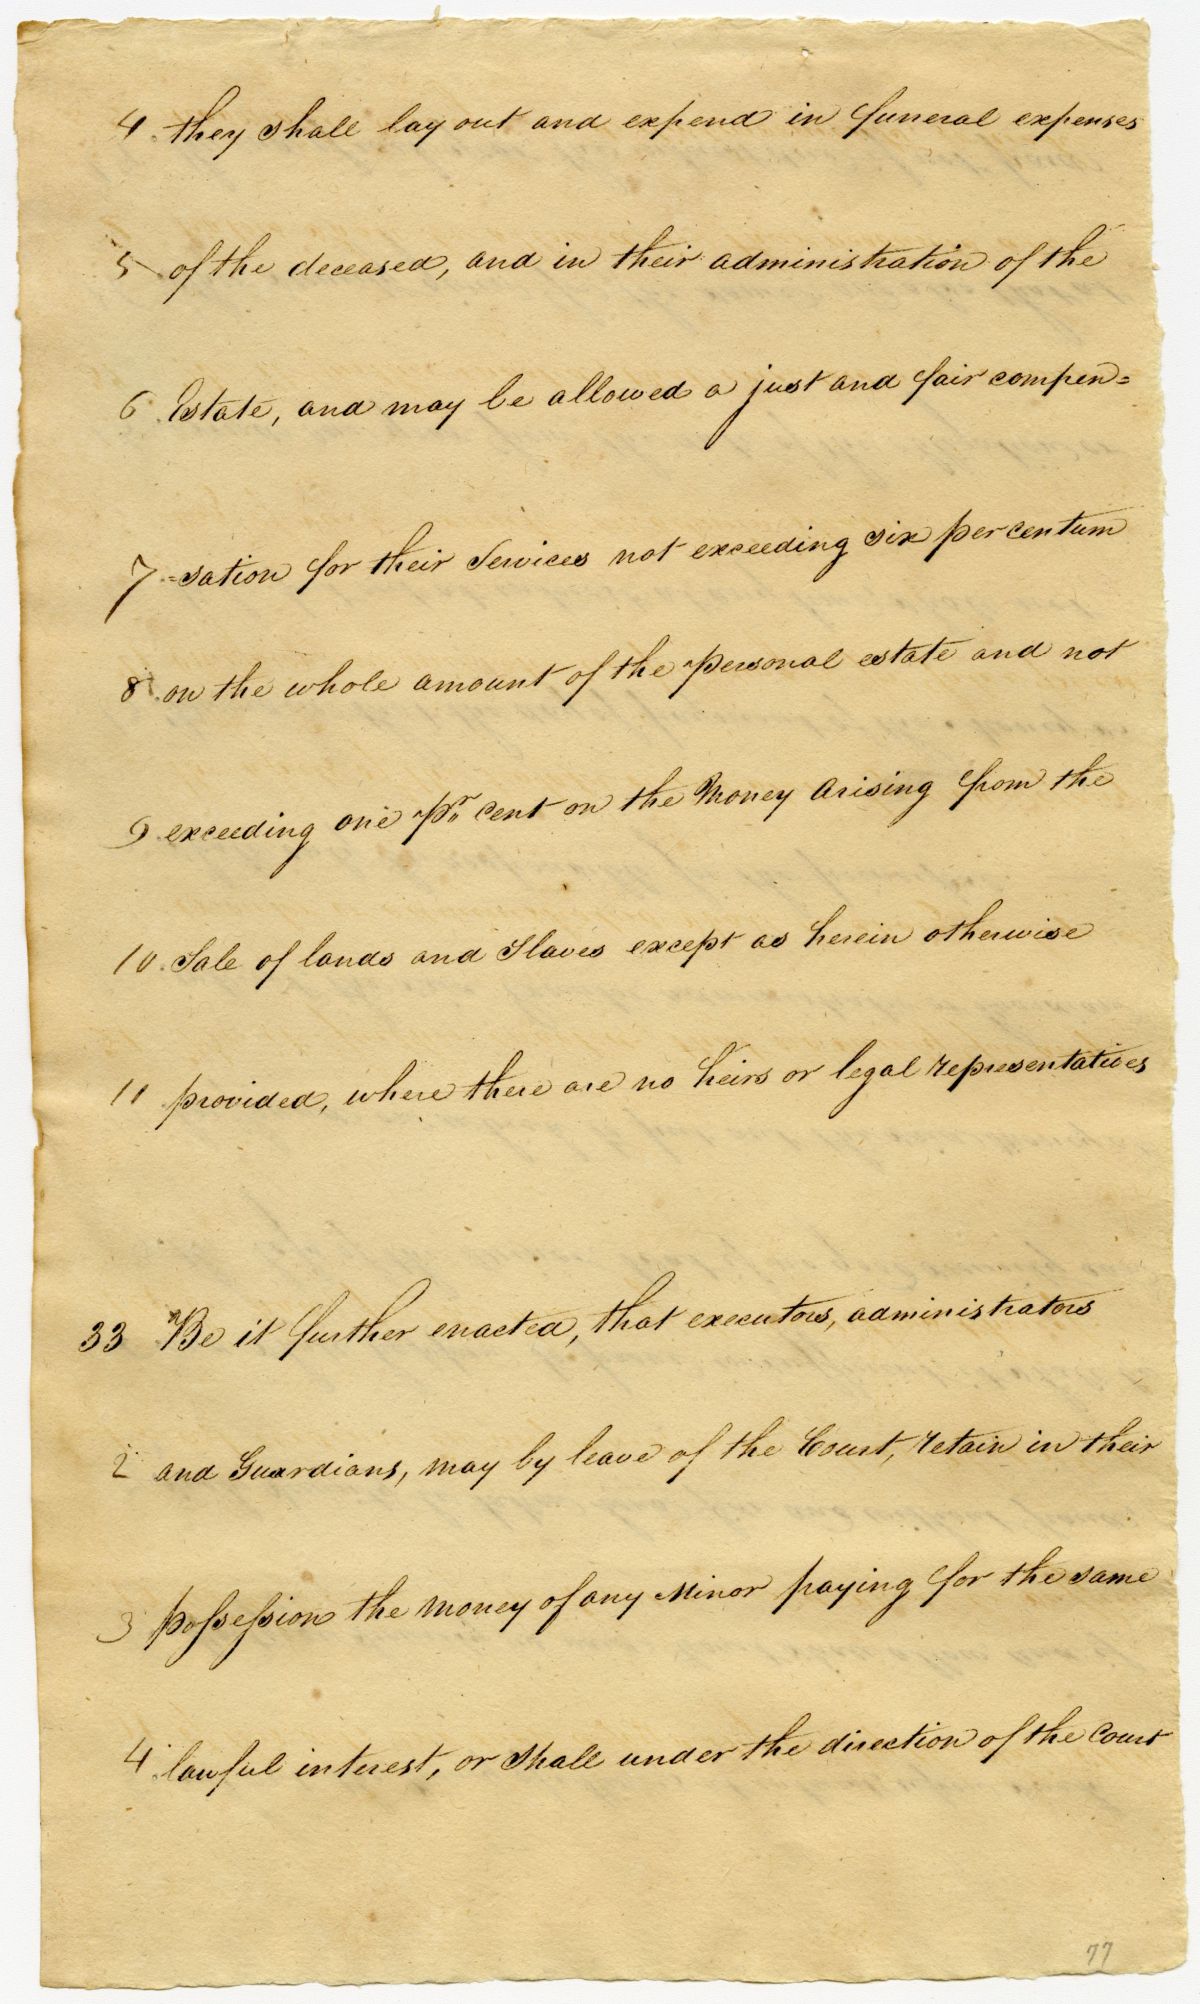 4 they shall lay out and expend in funeral expenses
5 of the deceased, and in their administration of the
6 Estate, and may be allowed a just and fair compen=
7 =sation for their Services not exceeding six per centum
8 on the whole amount of the personal estate and not
9 exceeding one pr cent on the Money arising from the
10 Sale of lands and Slaves except as herein otherwise
11 provided, where there are no heirs or legal representatives
33 Be it further enacted, that executors, administrators
2 and Guardians, may by leave of the Court, retain in their
3 poſseſsion the money of any Minor paying for the same
4 lawful interest, or shall under the direction of the Court
77